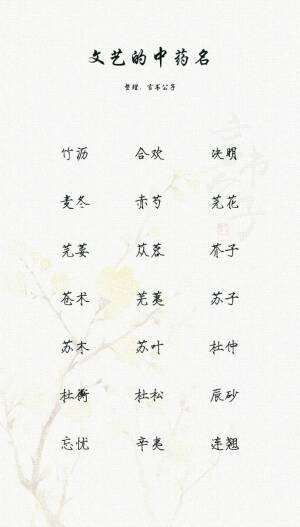 文艺的中药名
整理：言书公子
竹沥 合欢 决明
麦冬 赤芍 芫花
芫荽 苁蓉 芥子
苍术 芜荑 苏子
苏木 苏叶 杜仲
杜衡 杜松 辰砂
忘忧 辛夷 连翘
言书
公子